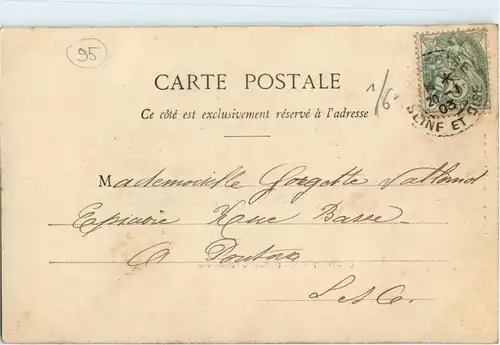 95
CARTE POSTALE
Ce côté est exclusivement réservé à l'adresse
1/6
SEINE ET OISE
20
03
Mademoiselle Gorgette
Epicerie Rue Basse
A Pontoise
S et O.